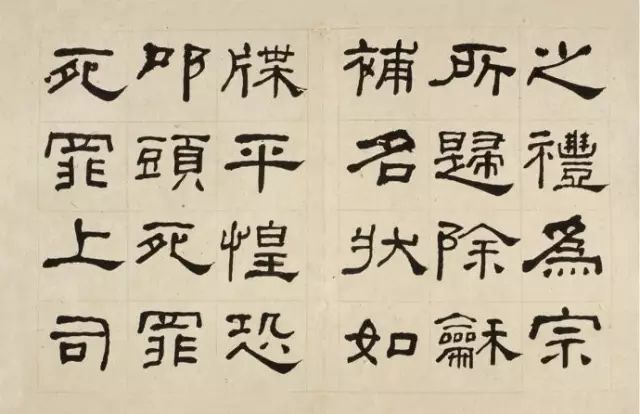 之禮爲宗
所歸除龢
補名狀如
牒平惶恐
叩頭死罪
死罪上司